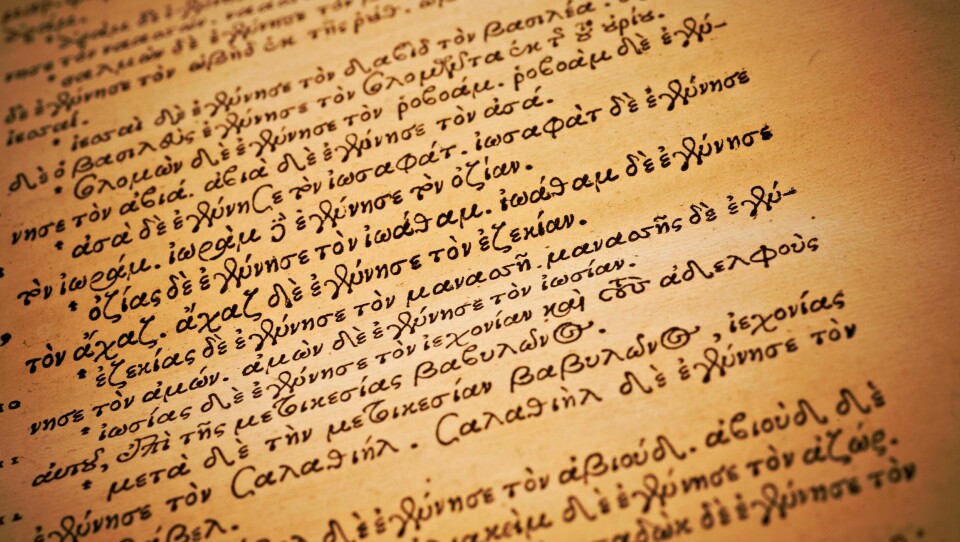 δὲ ἐγέννησε τὸν ὠβὴδ ἐκ τῆς ῥούθ.
ἰεσσαί.
ἰεσσαὶ δὲ ἐγέννησε τὸν δαβὶδ τὸν βασιλέα.
δὲ ὁ βασιλεὺς ἐγέννησε τὸν Σολομῶντα ἐκ τῆς τοῦ οὐρίου.
Σολομὼν δὲ ἐγέννησε τὸν ῥοβοάμ. ῥοβοὰμ δὲ ἐγέν-
νησε τὸν ἀβιά. ἀβιὰ δὲ ἐγέννησε τὸν ἀσά.
ἀσὰ δὲ ἐγέννησε τὸν ἰωσαφάτ. ἰωσαφὰτ δὲ ἐγέννησε
τὸν ἰωράμ. ἰωρὰμ δὲ ἐγέννησε τὸν ὀζίαν.
ὀζίας δὲ ἐγέννησε τὸν ἰωάθαμ. ἰωάθαμ δὲ ἐγέννησε
τὸν ἄχαζ. ἄχαζ δὲ ἐγέννησε τὸν ἐζεκίαν.
ἐζεκίας δὲ ἐγέννησε τὸν μανασσῆ. μανασσῆς δὲ ἐγέν-
νησε τὸν ἀμών. ἀμὼν δὲ ἐγέννησε τὸν ἰωσίαν.
ἰωσίας δὲ ἐγέννησε τὸν ἰεχονίαν καὶ τοὺς ἀδελφοὺς
αὐτοῦ, ἐπὶ τῆς μετοικεσίας βαβυλῶνος.
μετὰ δὲ τὴν μετοικεσίαν βαβυλῶνος, ἰεχονίας
ἐγέννησε τὸν Σαλαθιήλ. Σαλαθιὴλ δὲ ἐγέννησε τὸν
δὲ ἐγέννησε τὸν ἀβιούδ. ἀβιοὺδ δὲ
δὲ ἐγέννησε τὸν ἀζώρ.
δὲ ἐγέννησε τὸν